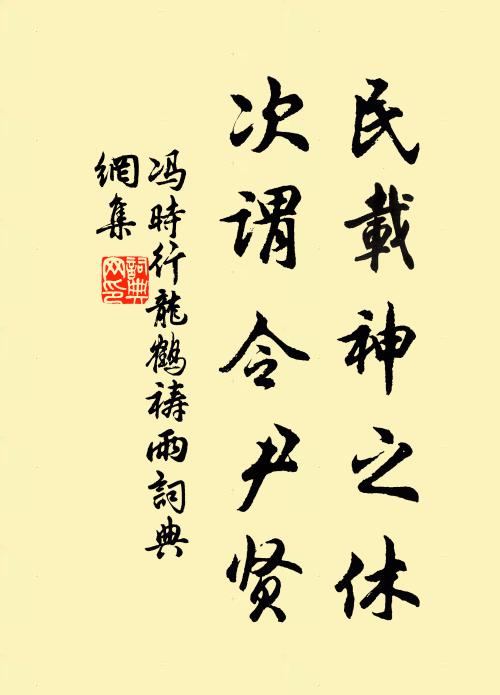 民載神之休
次謂令尹贤
冯時行龍鶴祷雨詞典
網集
詞典網印